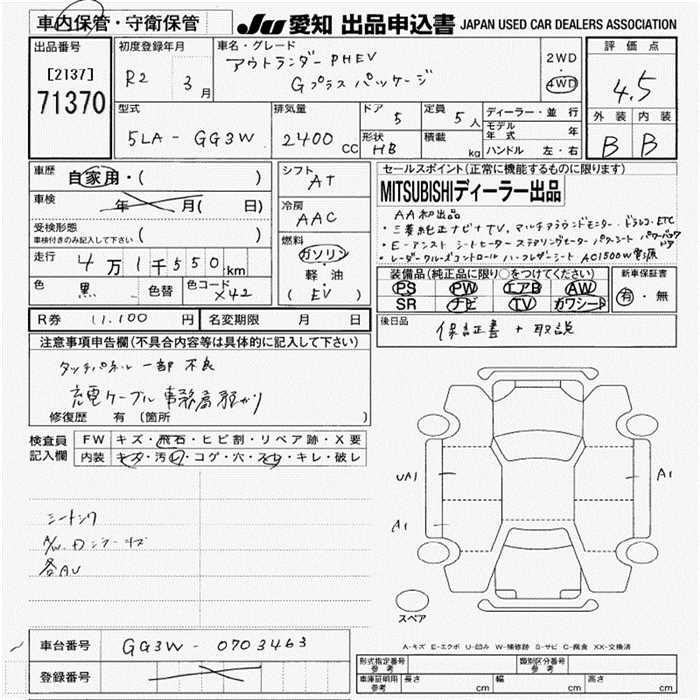 車内保管・守衛保管
JU 愛知 出品申込書 JAPAN USED CAR DEALERS ASSOCIATION
出品番号
[2137]
71370
初度登録年月
R2 3月
車名・グレード
アウトランダー PHEV
Gプラス パッケージ
2WD
・
4WD
評価点
4.5
外装 内装
B B
型式
5LA - GG3W
排気量
2400 CC
ドア 5
形状 HB
定員 5人
積載 kg
ディーラー・並行
モデル年式 年
ハンドル 左・右
車歴
自家用・( )
車検
年 月( 日)
受検形態
車検付きのみ記入して下さい ( )
走行
4万1千550km
色 黒 色替 色コード X42
シフト
AT
冷房
AAC
燃料
ガソリン
軽油
(EV)
セールスポイント(正常に機能するものに限ります)
MITSUBISHIディーラー出品
AA初出品
・三菱純正ナビ+TV、マルチアラウンドモニター・ドラレコ・ETC
・E-アシスト シートヒーター ステアリングヒーター パワーシート パワーバックドア
・レーダークルーズコントロール ハーフレザーシート AC1500W電源
装備品(純正品に限り○をつけてください)
PS PW エアB AW
SR ナビ TV カワシート
新車保証書
有・無
R券 11,100円
名変期限 月 日
後日品
保証書 + 取説
注意事項申告欄(不具合内容等は具体的に記入して下さい)
タッチパネル 一部 不良
充電ケーブル 事務局預かり
修復歴 有(箇所 )
検査員記入欄
FW キズ・飛石・ヒビ割・リペア跡・X要
内装 キズ・汚レ・コゲ・穴・スレ・キレ・破レ
各AU
UA1
A1
A1
スペア
A-キズ E-エクボ U-凹み W-補修跡 S-サビ C-腐食 XX-交換済
車台番号 GG3W - 0703463
登録番号
形式指定番号 参考
類別区分番号 参考
車庫証明用 参考 長さ cm 幅 cm 高さ cm